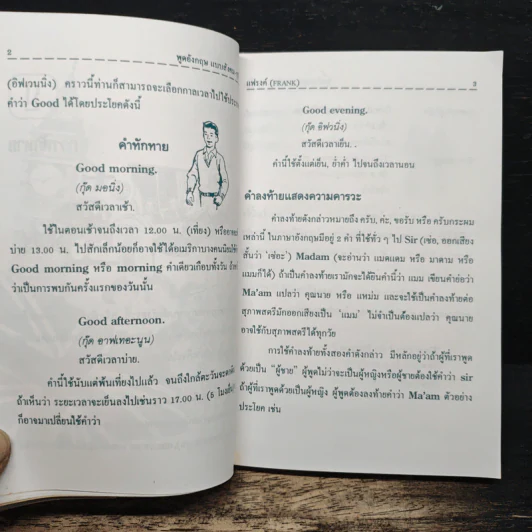 2
พูดอังกฤษ แบบฝรั่ง
(อีฟเวนนิ่ง) คราวนี้ท่านก็สามารถจะเลือกกาลเวลาไปใช้ประกอบ
คำว่า Good ได้โดยประโยคดังนี้
คำทักทาย
Good morning.
(กุ๊ด มอนิ่ง)
สวัสดีเวลาเช้า.
ใช้ในตอนเช้าจนถึงเวลา 12.00 น. (เที่ยง) หรืออาจ
บ่าย 13.00 น. ไปสักเล็กน้อยก็อาจใช้ได้อเมริกาบางคนนิยมใช้
Good morning หรือ morning คำเดียวเกือบทั้งวัน
ว่าเป็นการพบกันครั้งแรกของวันนั้น
Good afternoon.
(กุ๊ด อาฟเทอะนูน)
สวัสดีเวลาบ่าย.
คำนี้ใช้นับแต่พ้นเที่ยงไปแล้ว จนถึงใกล้ตะวันจะตกดิน
ถ้าเห็นว่า ระยะเวลาจะเย็นลงไปเช่นราว 17.00 น. (5 โมงเย็น)
ก็อาจมาเปลี่ยนใช้คำว่า
แฟรงค์ (FRANK)
3
Good evening.
(กุ๊ด อีฟวนิ่ง)
สวัสดีเวลาเย็น. .
คำนี้ใช้ตั้งแต่เย็น, ย่ำค่ำ ไปจนถึงเวลานอน
คำลงท้ายแสดงความคารวะ
คำลงท้ายดังกล่าวหมายถึง ครับ, ค่ะ, ขอรับ หรือ ครับกระผม
เหล่านี้ ในภาษาอังกฤษมีอยู่ 2 คำ ที่ใช้ทั่ว ๆ ไป Sir (เซ่อ, ออกเสียง
สั้นว่า 'เซ่อะ') Madam (จะอ่านว่า แมดแดม หรือ มาดาม หรือ
แมมก็ได้) ถ้าเป็นคำลงท้ายเรามักจะได้ยินคำนี้ว่า แมม เขียนคำย่อว่า
Ma'am แปลว่า คุณนาย หรือ แหม่ม และจะใช้เป็นคำลงท้ายต่อ
สุภาพสตรีมักออกเสียงเป็น 'แมม' ไม่จำเป็นต้องแปลว่า คุณนาย
อาจใช้กับสุภาพสตรีได้ทุกวัย
การใช้คำลงท้ายทั้งสองคำดังกล่าว มีหลักอยู่ว่าถ้าผู้ที่เราพูด
ด้วยเป็น "ผู้ชาย" ผู้พูดไม่ว่าจะเป็นผู้หญิงหรือผู้ชายต้องใช้คำว่า sir
ถ้าผู้ที่เราพูดด้วยเป็นผู้หญิง ผู้พูดต้องลงท้ายคำว่า Ma'am ตัวอย่าง
ประโยค เช่น